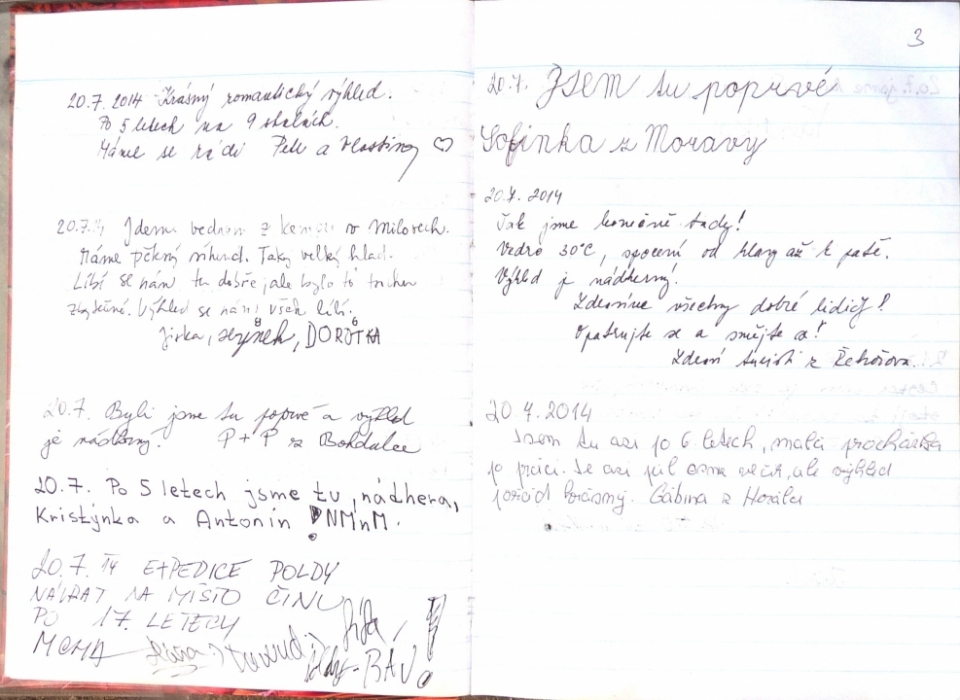 20.7. 2014 Krásný romantický výhled.
Po 5 letech na 9 skalách.
Máme se rádi Petr a Vlastina ♡
20.7.14 Jdeme z kempu v Milovech.
Máme pěkný víkend. Taky velký hlad.
Líbí se nám tu dobře, ale bylo to trochu
zbytečné. Výhled se nám však líbí.
Jirka, 8 6 DOROTKA
20.7. Byli jsme tu poprvé a výhled
je nádherný. P+P z Bohdalce
20.7. Po 5 letech jsme tu, nádhera,
Kristýnka a Antonín NMnM.
20.7. 14 EXPEDICE POLDY
NÁVRAT NA MÍSTO ČINU
PO 17. LETECH
3
20.7. Jsem tu poprvé
Sofinka z Moravy
20.7. 2014
Tak jsme konečně tady!
Vedro 30°C, spocení od hlavy až k patě.
Výhled je nádherný!
Zdravíme všechny dobré lidičky!
Opatrujte se a smějte se!
Zdraví turisti z
20.7.2014
Jsem tu asi po 6. letech, malá procházka
po práci. Je asi půl osmé večer, ale výhled
pořád krásný. Gábina z